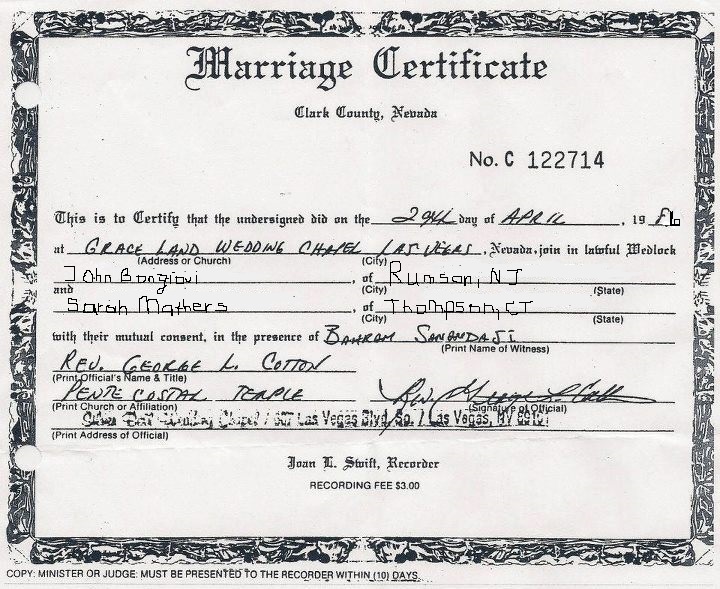 Marriage Certificate
Clark County, Nevada
No. C 122714
This is to Certify that the undersigned did on the 29th day of APRIL, 19 86
at GRACE LAND WEDDING CHAPEL LAS VEGAS, Nevada, join in lawful Wedlock
(Address or Church) (City)
John Bongiovi, of Rumson, NJ
and (City) (State)
Sarah Mathers, of Thompson, CT
(City) (State)
with their mutual consent, in the presence of BAHRAM SANANDAJI
(Print Name of Witness)
REV. GEORGE L. COTTON
(Print Official's Name & Title)
PENTE COSTAL TEMPLE
(Print Church or Affiliation) (Signature of Official)
Wedding Chapel / Las Vegas Blvd. So. / Las Vegas, NV 89101
(Print Address of Official)
Joan L. Swift, Recorder
RECORDING FEE $3.00
COPY: MINISTER OR JUDGE: MUST BE PRESENTED TO THE RECORDER WITHIN (10) DAYS.